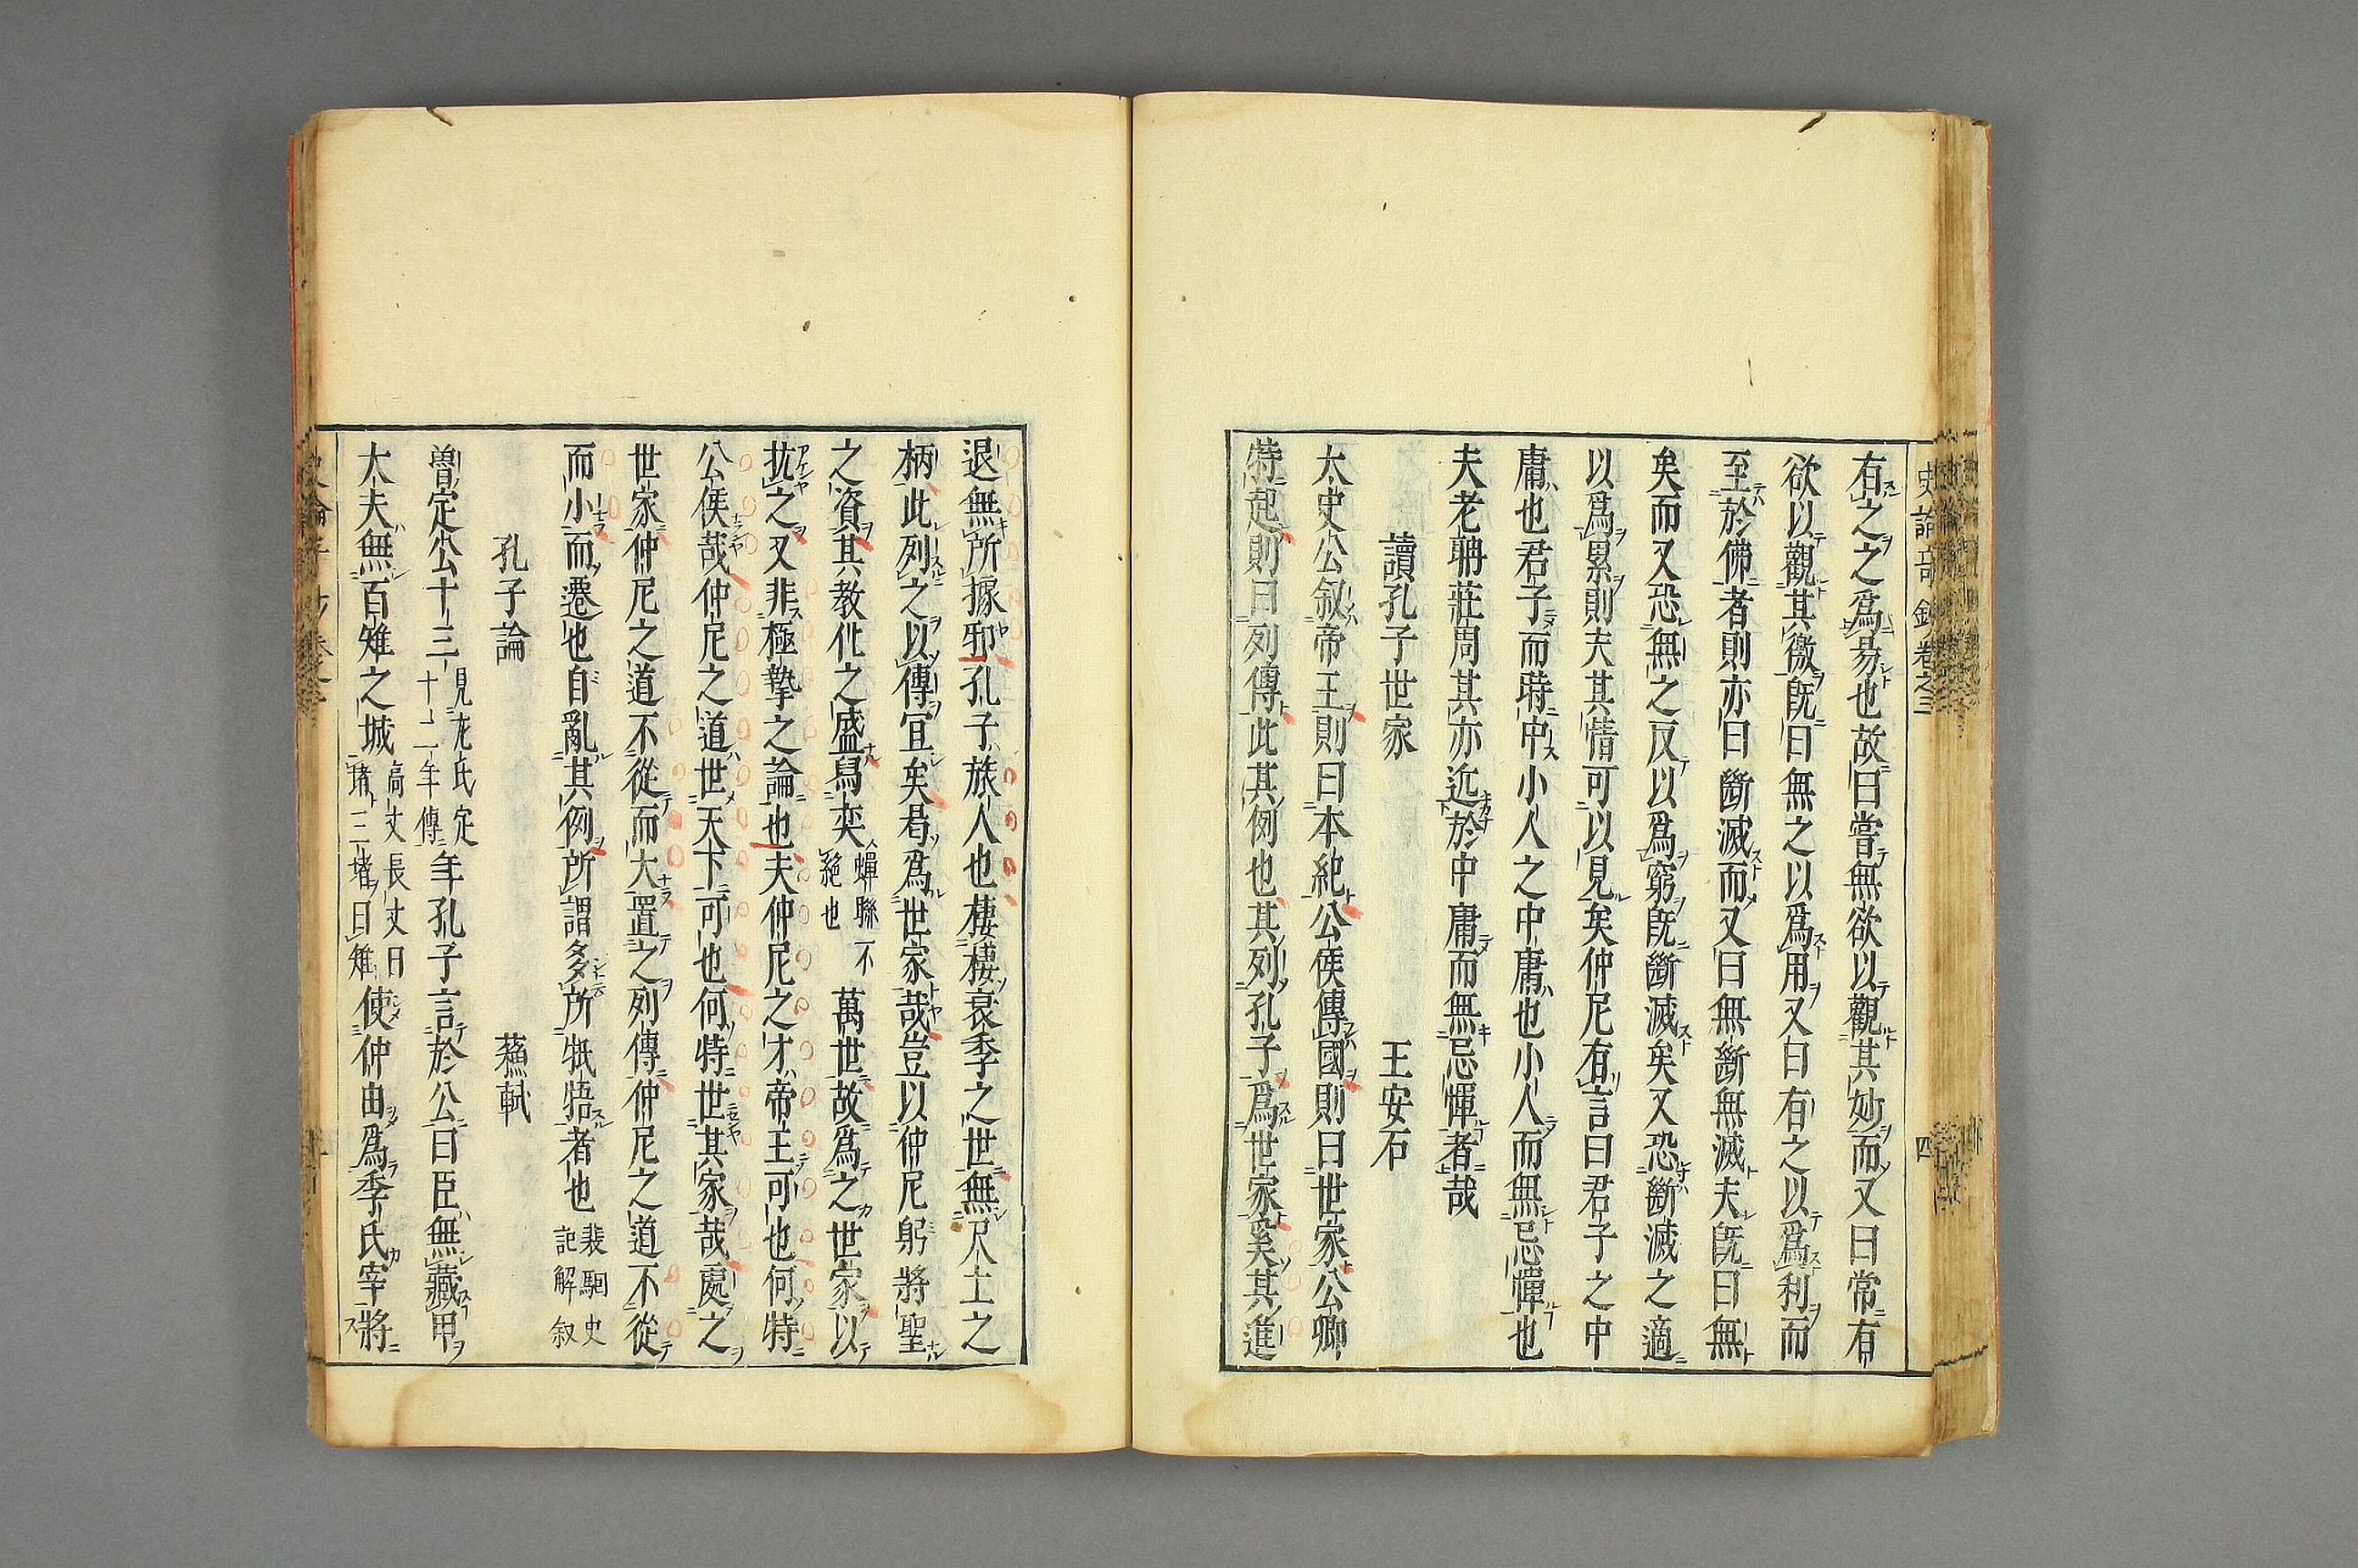 史論奇鈔卷之三　四
有之之爲易也故曰嘗無欲以觀其妙而又曰常有
欲以觀其徼旣曰無之以爲用又曰有之以爲利而
至於佛者則亦曰斷滅而又曰無斷無滅夫旣曰無
矣而又恐無之反以爲窮旣斷滅矣又恐斷滅之適
以爲累則夫其情可以見矣仲尼有言曰君子之中
庸也君子而時中小人之中庸也小人而無忌憚也
夫老聃莊周其亦近於中庸而無忌憚者哉
讀孔子世家　王安石
太史公叙帝王則曰本紀公侯傳國則曰世家公卿
特起則曰列傳此其例也其列孔子爲世家奚其進
退無所據邪孔子旅人也棲棲衰季之世無尺土之
柄此列之以傳宜矣曷爲世家哉豈以仲尼躬將聖
之資其教化之盛舄奕蟬聯不絕也萬世故爲之世家以
抗之又非極摯之論也夫仲尼之才帝王可也何特
公侯哉仲尼之道世天下可也何特世其家哉處之
世家仲尼之道不從而大置之列傳仲尼之道不從
而小而遷也自亂其例所謂多所牴牾者也裴駰史記解叙
孔子論　蘇軾
魯定公十三見左氏定十二年傳年孔子言於公曰臣無藏甲
大夫無百雉之城高丈長丈曰堵三堵曰雉使仲由爲季氏宰將